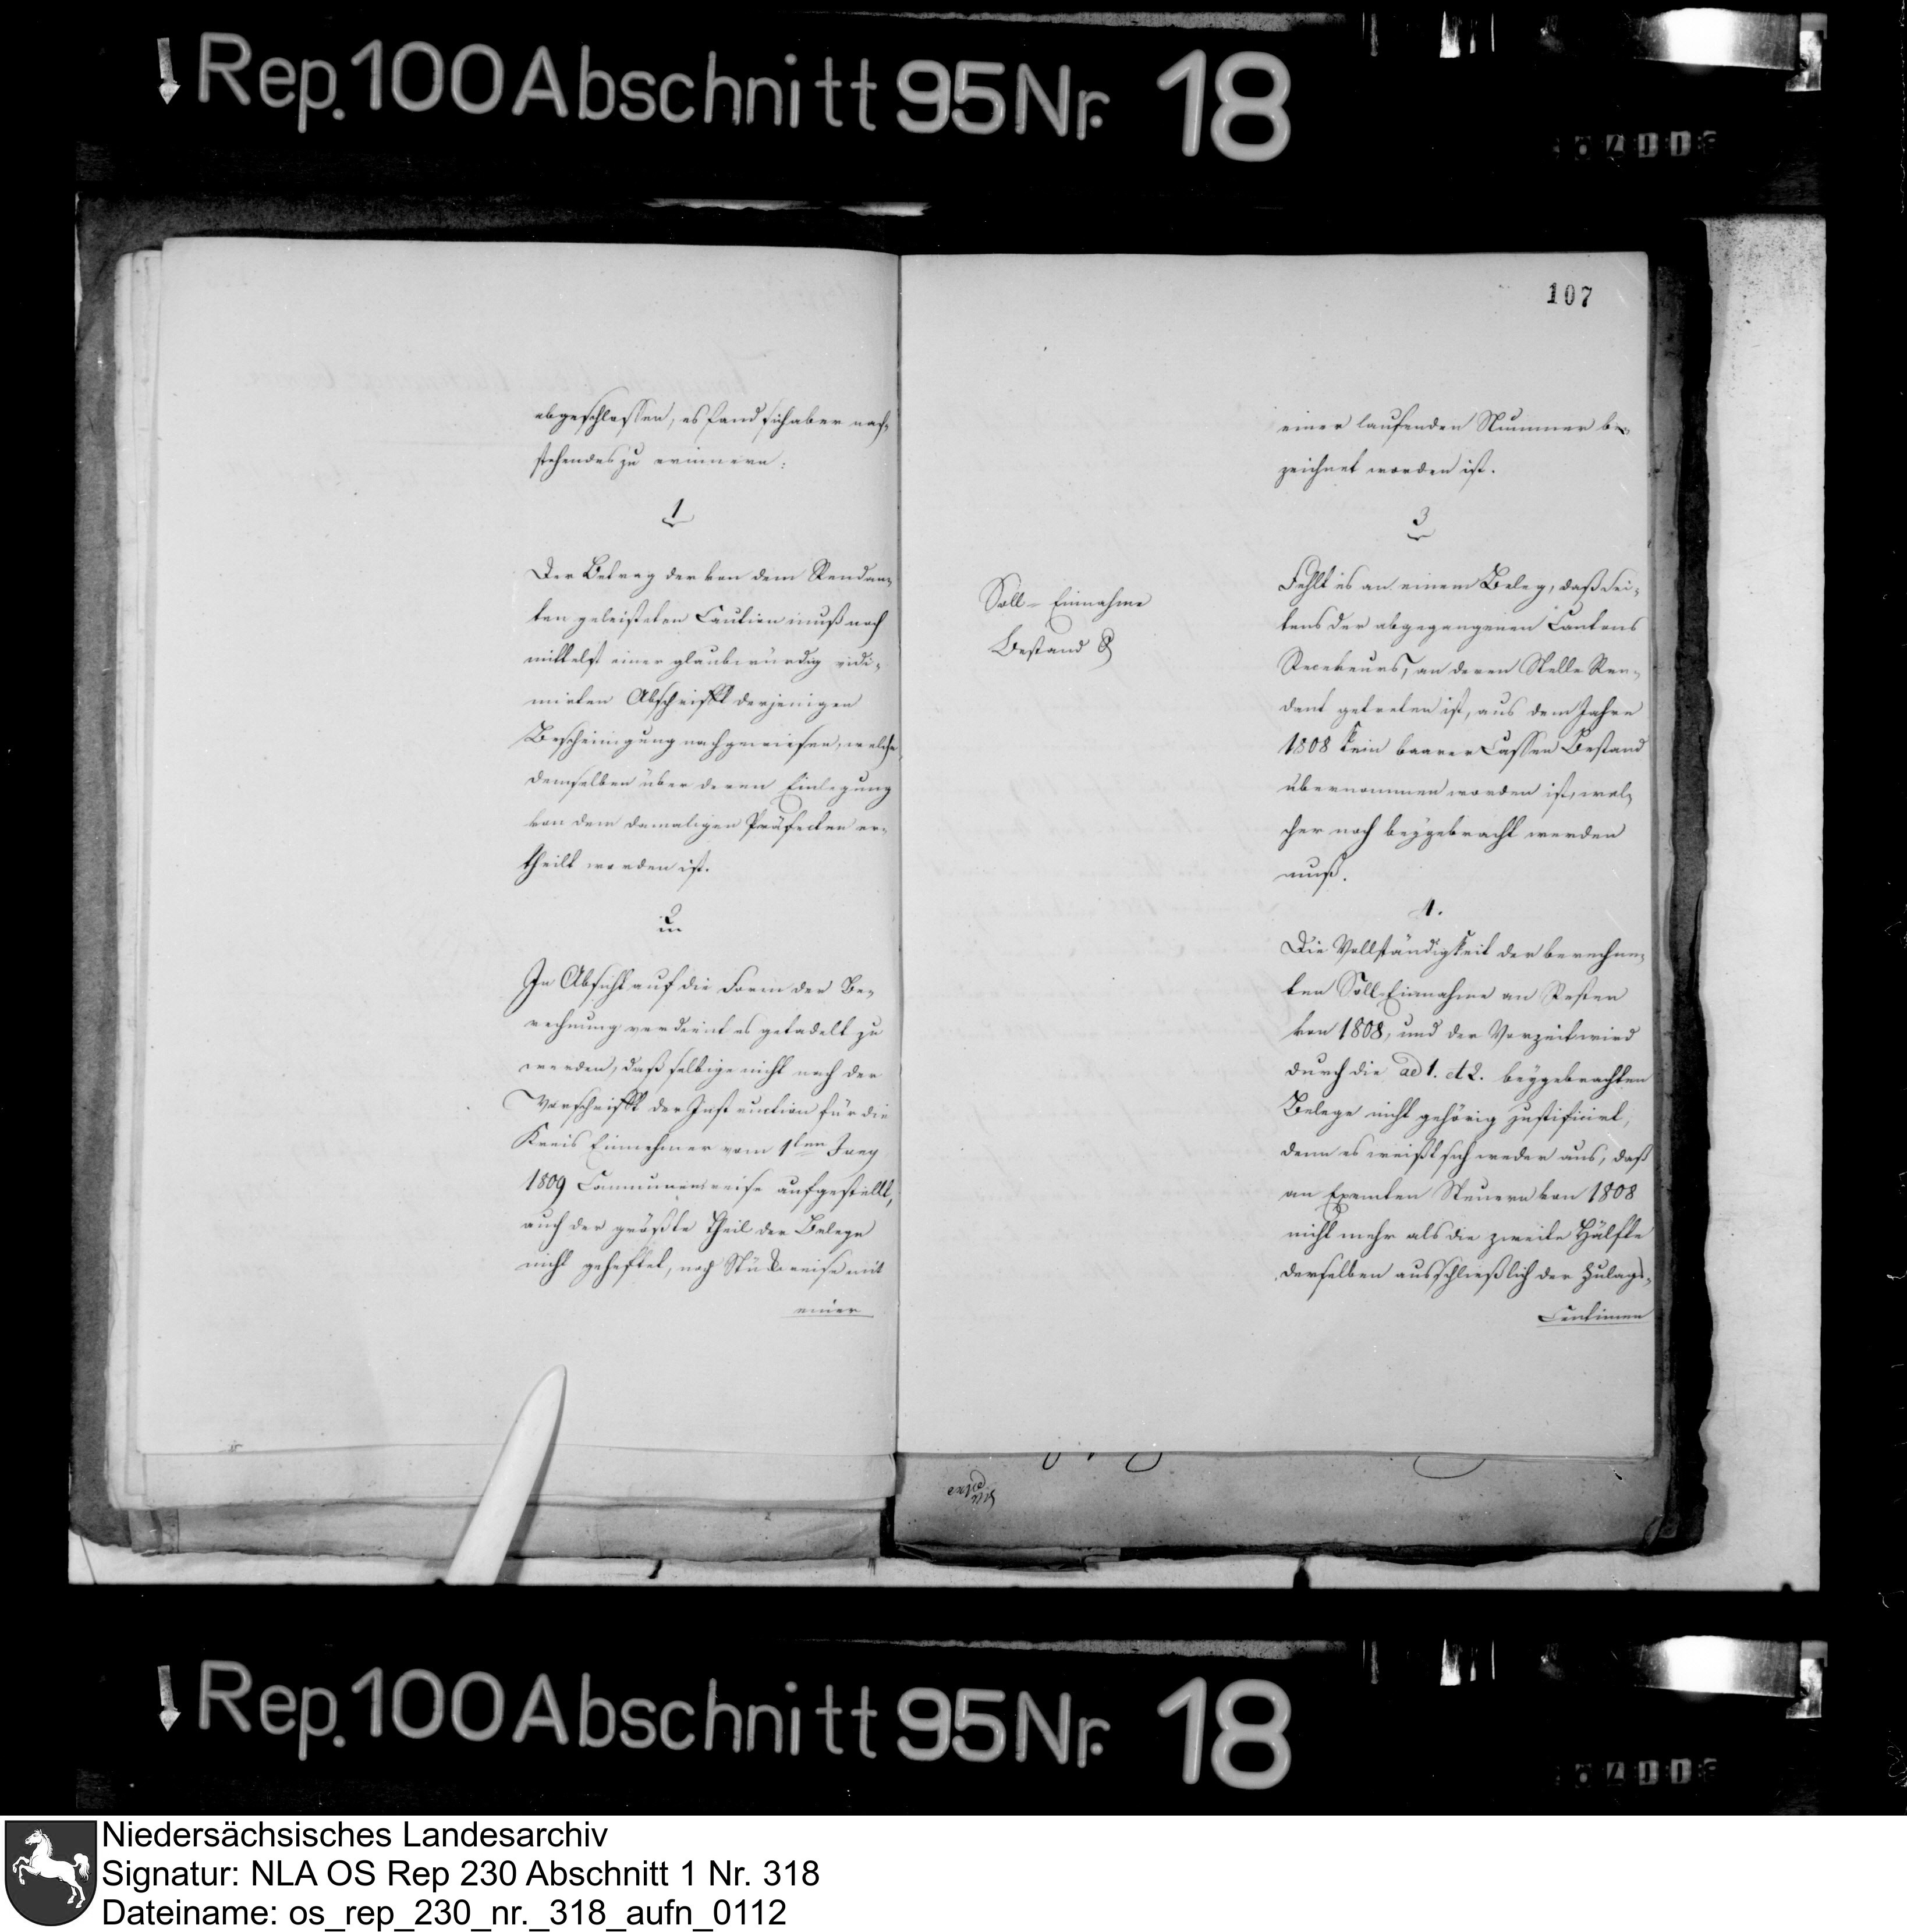 Rep. 100 Abschnitt 95 Nr. 18
abgeschlossen, es fand sich aber nach-
stehendes zu erinnern:
1
Der Betrag der von dem Rendan-
ten geleisteten Caution muß noch
mittelst einer glaubwürdig vidi-
mirten Abschrifft derjenigen
Bescheinigung nachgewiesen, welche
demselben über deren Einlegung
von dem damaligen Präfecten er-
theilt worden ist.
2
In Absicht auf die Form der Be-
rechnung verdient es getadelt zu
werden, daß selbige nicht nach der
Vorschrifft der Instruction für die
Kreis Einnehmer vom 1ten Juny
1809 Communenweise aufgestellt,
auch der größte Theil der Belege
nicht gehefftet, noch Stückweise mit
einer
107
einer laufenden Nummer be-
zeichnet worden ist.
3
Soll-Einnahme
Bestand
Fehlt es an einem Beleg, daß Sei-
tens der abgegangenen Cantons
Receveurs, an deren Stelle Ren-
dant getreten ist, aus dem Jahre
1808 kein baarer Cassen Bestand
übernommen worden ist, wel-
cher noch beygebracht werden
muß.
4.
Die Vollständigkeit der berechne-
ten Soll-Einnahme an Resten
von 1808, und der Vorzeit wird
durch die ad 1. et 2. beygebrachten
Belege nicht gehörig justificirt,
denn es weißt sich weder aus, daß
an Exemten Steuern von 1808
nicht mehr als die zweite Hälfte
derselben ausschließlich der Zulags-
Centimen
Rep. 100 Abschnitt 95 Nr. 18
Niedersächsisches Landesarchiv
Signatur: NLA OS Rep 230 Abschnitt 1 Nr. 318
Dateiname: os_rep_230_nr._318_aufn_0112